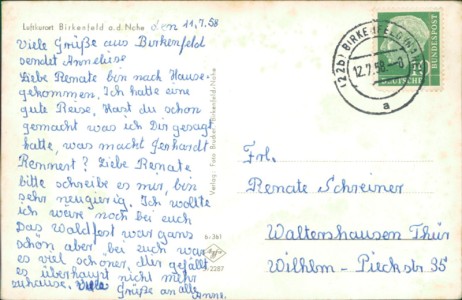 Luftkurort Birkenfeld a.d. Nahe
den 11.7.58
Viele Grüße aus Birkenfeld
sendet Anneliese
Liebe Renate bin nach Hause
gekommen. Ich hatte eine
gute Reise, Hast du schon
gemacht was ich Dir gesagt
hatte, was macht Gerhardt
Rennert? Liebe Renate
bitte schreibe es mir, bin
sehr neugierig. Ich wollte
ich wäre noch bei euch
Das Waldfest war ganz
schön aber bei euch war
es viel schöner, Mir gefällt
es überhaupt nicht mehr
zuhause. Viele Grüße an alle
Verlag: Foto Brucker, Birkenfeld-Nahe
6-361
2287
(22b) BIRKENFELD
12.7.58
a
DEUTSCHE
BUNDESPOST
10
Frl.
Renate Schreiner
Waltershausen Thür
Wilhelm-Pieckstr 35